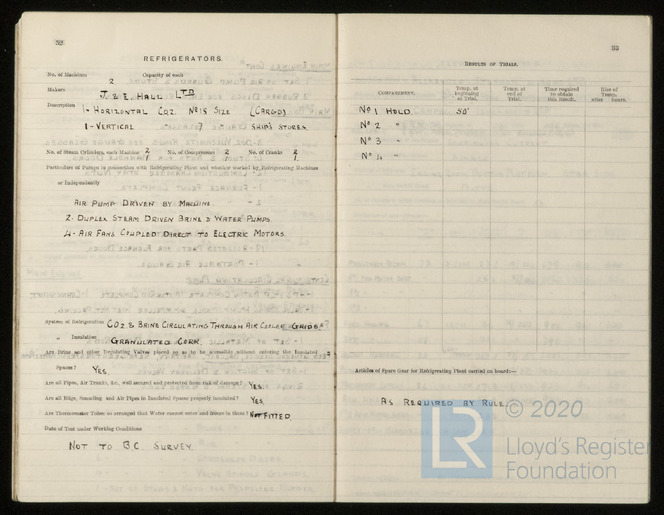 52
REFRIGERATORS.
No. of Machines 2 Capacity of each
Makers J. & E. HALL LTD
Description 1- HORIZONTAL CO2 NR18 SIZE (CARGO)
1 - VERTICAL " 7 " SHIP'S STORES.
No. of Steam Cylinders, each Machine 2/1 No. of Compressors 2 No. of Cranks 2/1.
Particulars of Pumps in connection with Refrigerating Plant and whether worked by Refrigerating Machines
or Independently
AIR PUMP DRIVEN BY MACHINE
2- DUPLEX STEAM DRIVEN BRINE & WATER PUMPS.
4- AIR FANS COUPLED DIRECT TO ELECTRIC MOTORS.
System of Refrigeration CO2 & BRINE CIRCULATING THROUGH AIR COOLER GRIDS
" Insulation GRANULATED CORK.
Are Brine and other Regulating Valves placed so as to be accessible without entering the Insulated
Spaces? YES.
Are all Pipes, Air Trunks, &c., well secured and protected from risk of damage? YES.
Are all Bilge, Sounding and Air Pipes in Insulated Spaces properly insulated? YES.
Are Thermometer Tubes so arranged that Water cannot enter and freeze in them? NOT FITTED
Date of Test under Working Conditions
NOT TO B.C. SURVEY.
53
RESULTS OF TRIALS.
COMPARTMENT. Temp. at beginning of Trial. Temp. at end of Trial. Time required to obtain this Result. Rise of Temp. after hours.
No 1 HOLD 50°
No 2 "
No 3 "
No 4 "
Articles of Spare Gear for Refrigerating Plant carried on board:—
AS REQUIRED BY RULE.
LR
© 2020
Lloyd's Register
Foundation